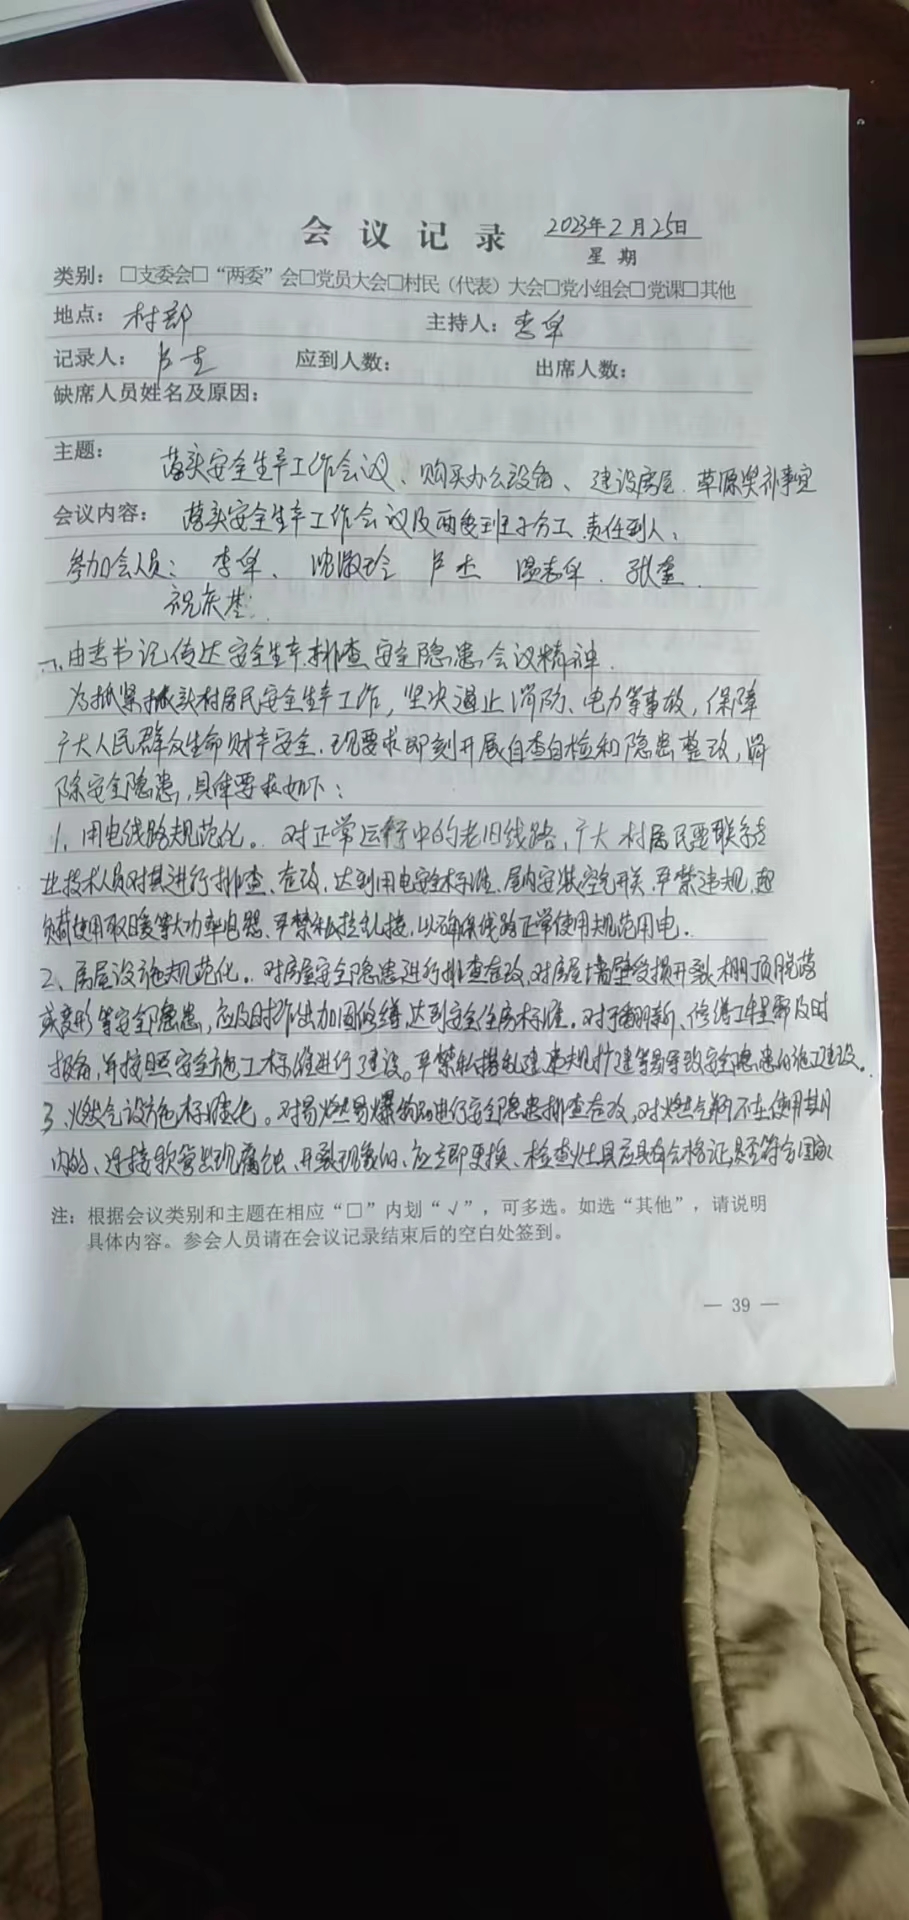 会议记录 2023年2月25日
星期
类别：□支委会□“两委”会□党员大会□村民（代表）大会□党小组会□党课□其他
地点：村部 主持人：李军
记录人：卢杰 应到人数： 出席人数：
缺席人员姓名及原因：
主题： 落实安全生产工作会议、购买办公设备、建设房屋、草原奖补事宜
会议内容： 落实安全生产工作会议及两委班子分工、责任到人：
参加会人员： 李军、沈淑玲 卢杰 温志军、张奎
一、由李书记传达安全生产、排查安全隐患会议精神.
为抓紧抓实村居民安全生产工作，坚决遏止消防、电力等事故，保障
广大人民群众生命财产安全，现要求即刻开展自查自检和隐患整改，消
除安全隐患，具体要求如下：
1、用电线路规范化。对正常运行中的老旧线路，广大村居民要联系专
业技术人员对其进行排查、查改，达到用电安全标准，屋内安装空气开关，严禁违规、超
负荷使用取暖等大功率电器、严禁私拉乱接，以确保线路正常使用规范用电。
2、房屋设施规范化。对房屋安全隐患进行排查查改，对房屋墙壁受损开裂、棚顶脱落
或变形等安全隐患，应及时作出加固修缮，达到安全住房标准。对于翻新、修缮工程需及时
报备，并按照安全施工标准进行建设。严禁私搭乱建、违规扩建等易导致安全隐患的施工建设。
3、燃气设施标准化。对易燃易爆物品进行安全隐患排查查改，对燃气瓶不在使用期
内的、连接软管出现腐蚀、开裂现象的、应立即更换、检查灶具应具有合格证，是否符合国家
注：根据会议类别和主题在相应“□”内划“√”，可多选。如选“其他”，请说明
具体内容。参会人员请在会议记录结束后的空白处签到。
— 39 —